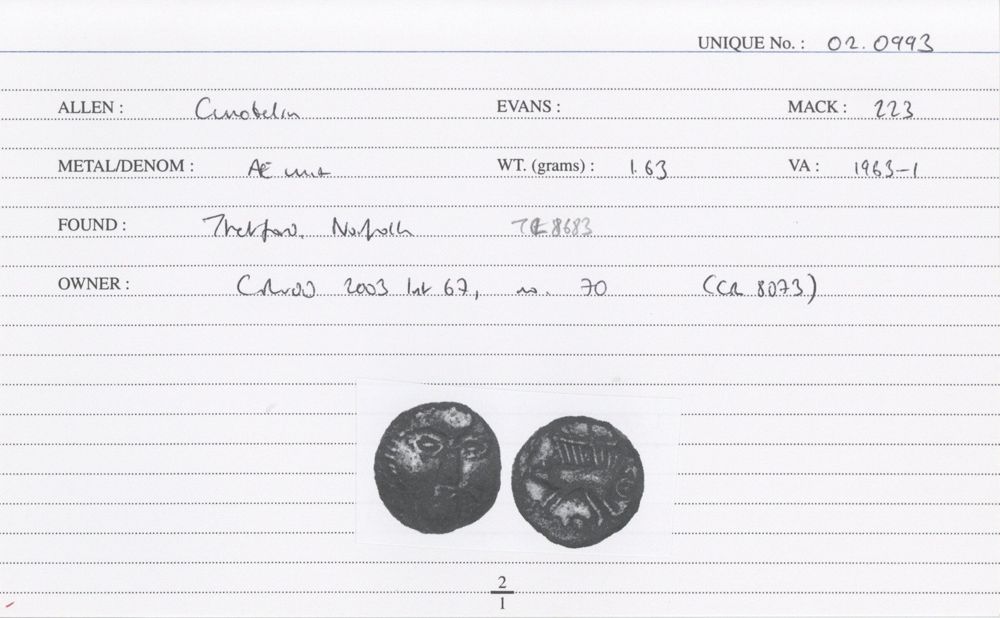 UNIQUE No. : 02.0993
ALLEN : Cunobelin EVANS : MACK : 223
METAL/DENOM : Æ unit WT. (grams) : 1.63 VA : 1963-1
FOUND : Thetford, Norfolk TL 8683
OWNER : 2003 lot 67, no. 70 (CR 8073)
2
1